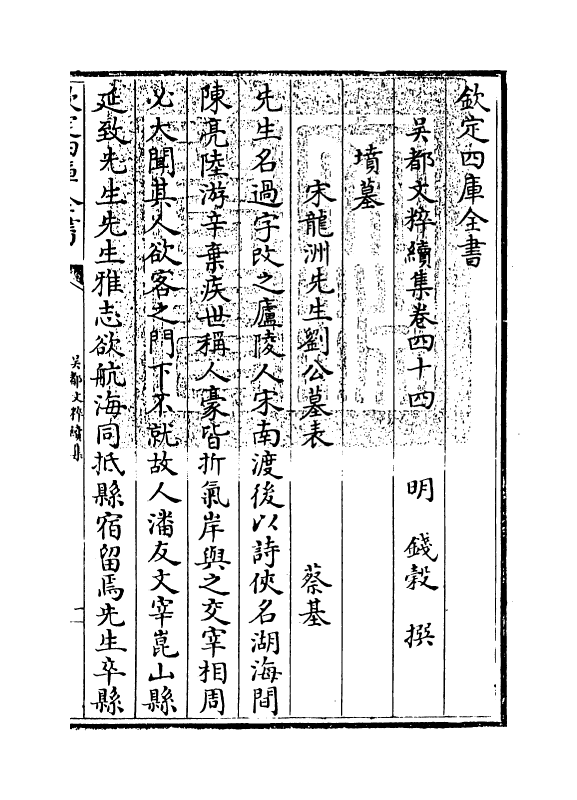 欽定四庫全書
吳都文粹續集卷四十四
明 錢榖 撰
墳墓
宋龍洲先生劉公墓表 蔡基
先生名過字改之廬陵人宋南渡後以詩俠名湖海間
陳亮陸游辛棄疾世稱人豪皆折氣岸與之交宰相周
必大聞其人欲客之門下不就故人潘友文宰崑山縣
延致先生先生雅志欲航海同抵縣宿留焉先生卒縣
欽定四庫全書
吳都文粹續集
一